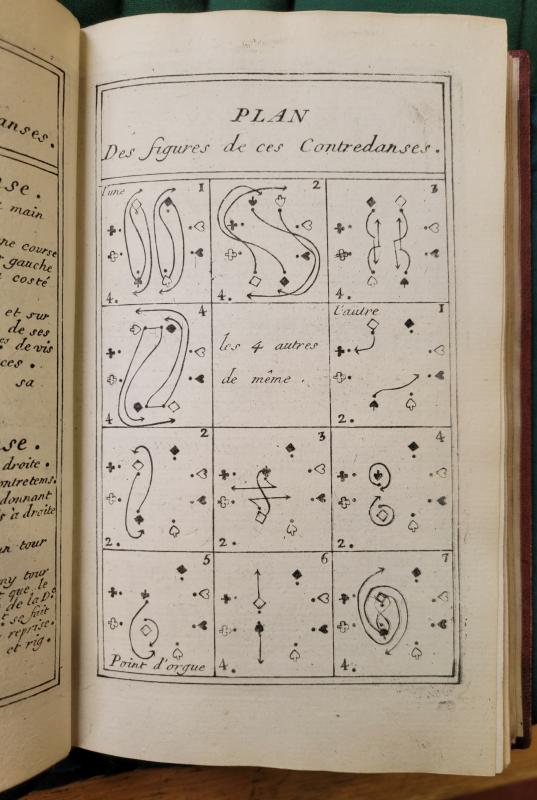 anses.
se.
main
ne course
gauche
costé
et sur
de ses
de vis
ces.
sa
se.
droite.
ontretems.
donnant
s à droite
un tour
ny tour
que le
de la D.e
sa fait
reprise.
et rig.
PLAN
Des figures de ces Contredanses.
l'une 1
4.
2
4.
3
4.
4
4
les 4 autres
de même.
l'autre 1
2.
2
2.
3
2.
4
2.
5
Point d'orgue
6
4.
7
4.